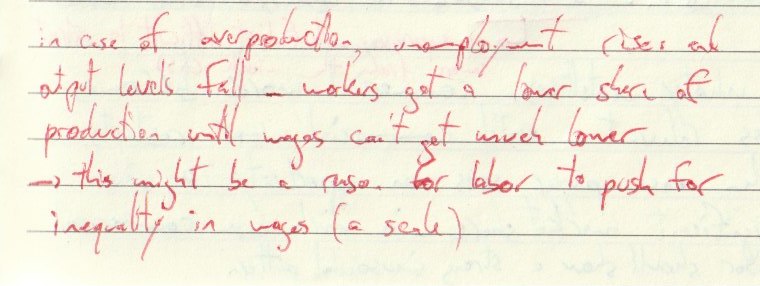 in case of overproduction, unemployment rises and
output levels fall – workers get a lower share of
production until wages can't get much lower
→ this might be a reason for labor to push for
inequality in wages (a scale)